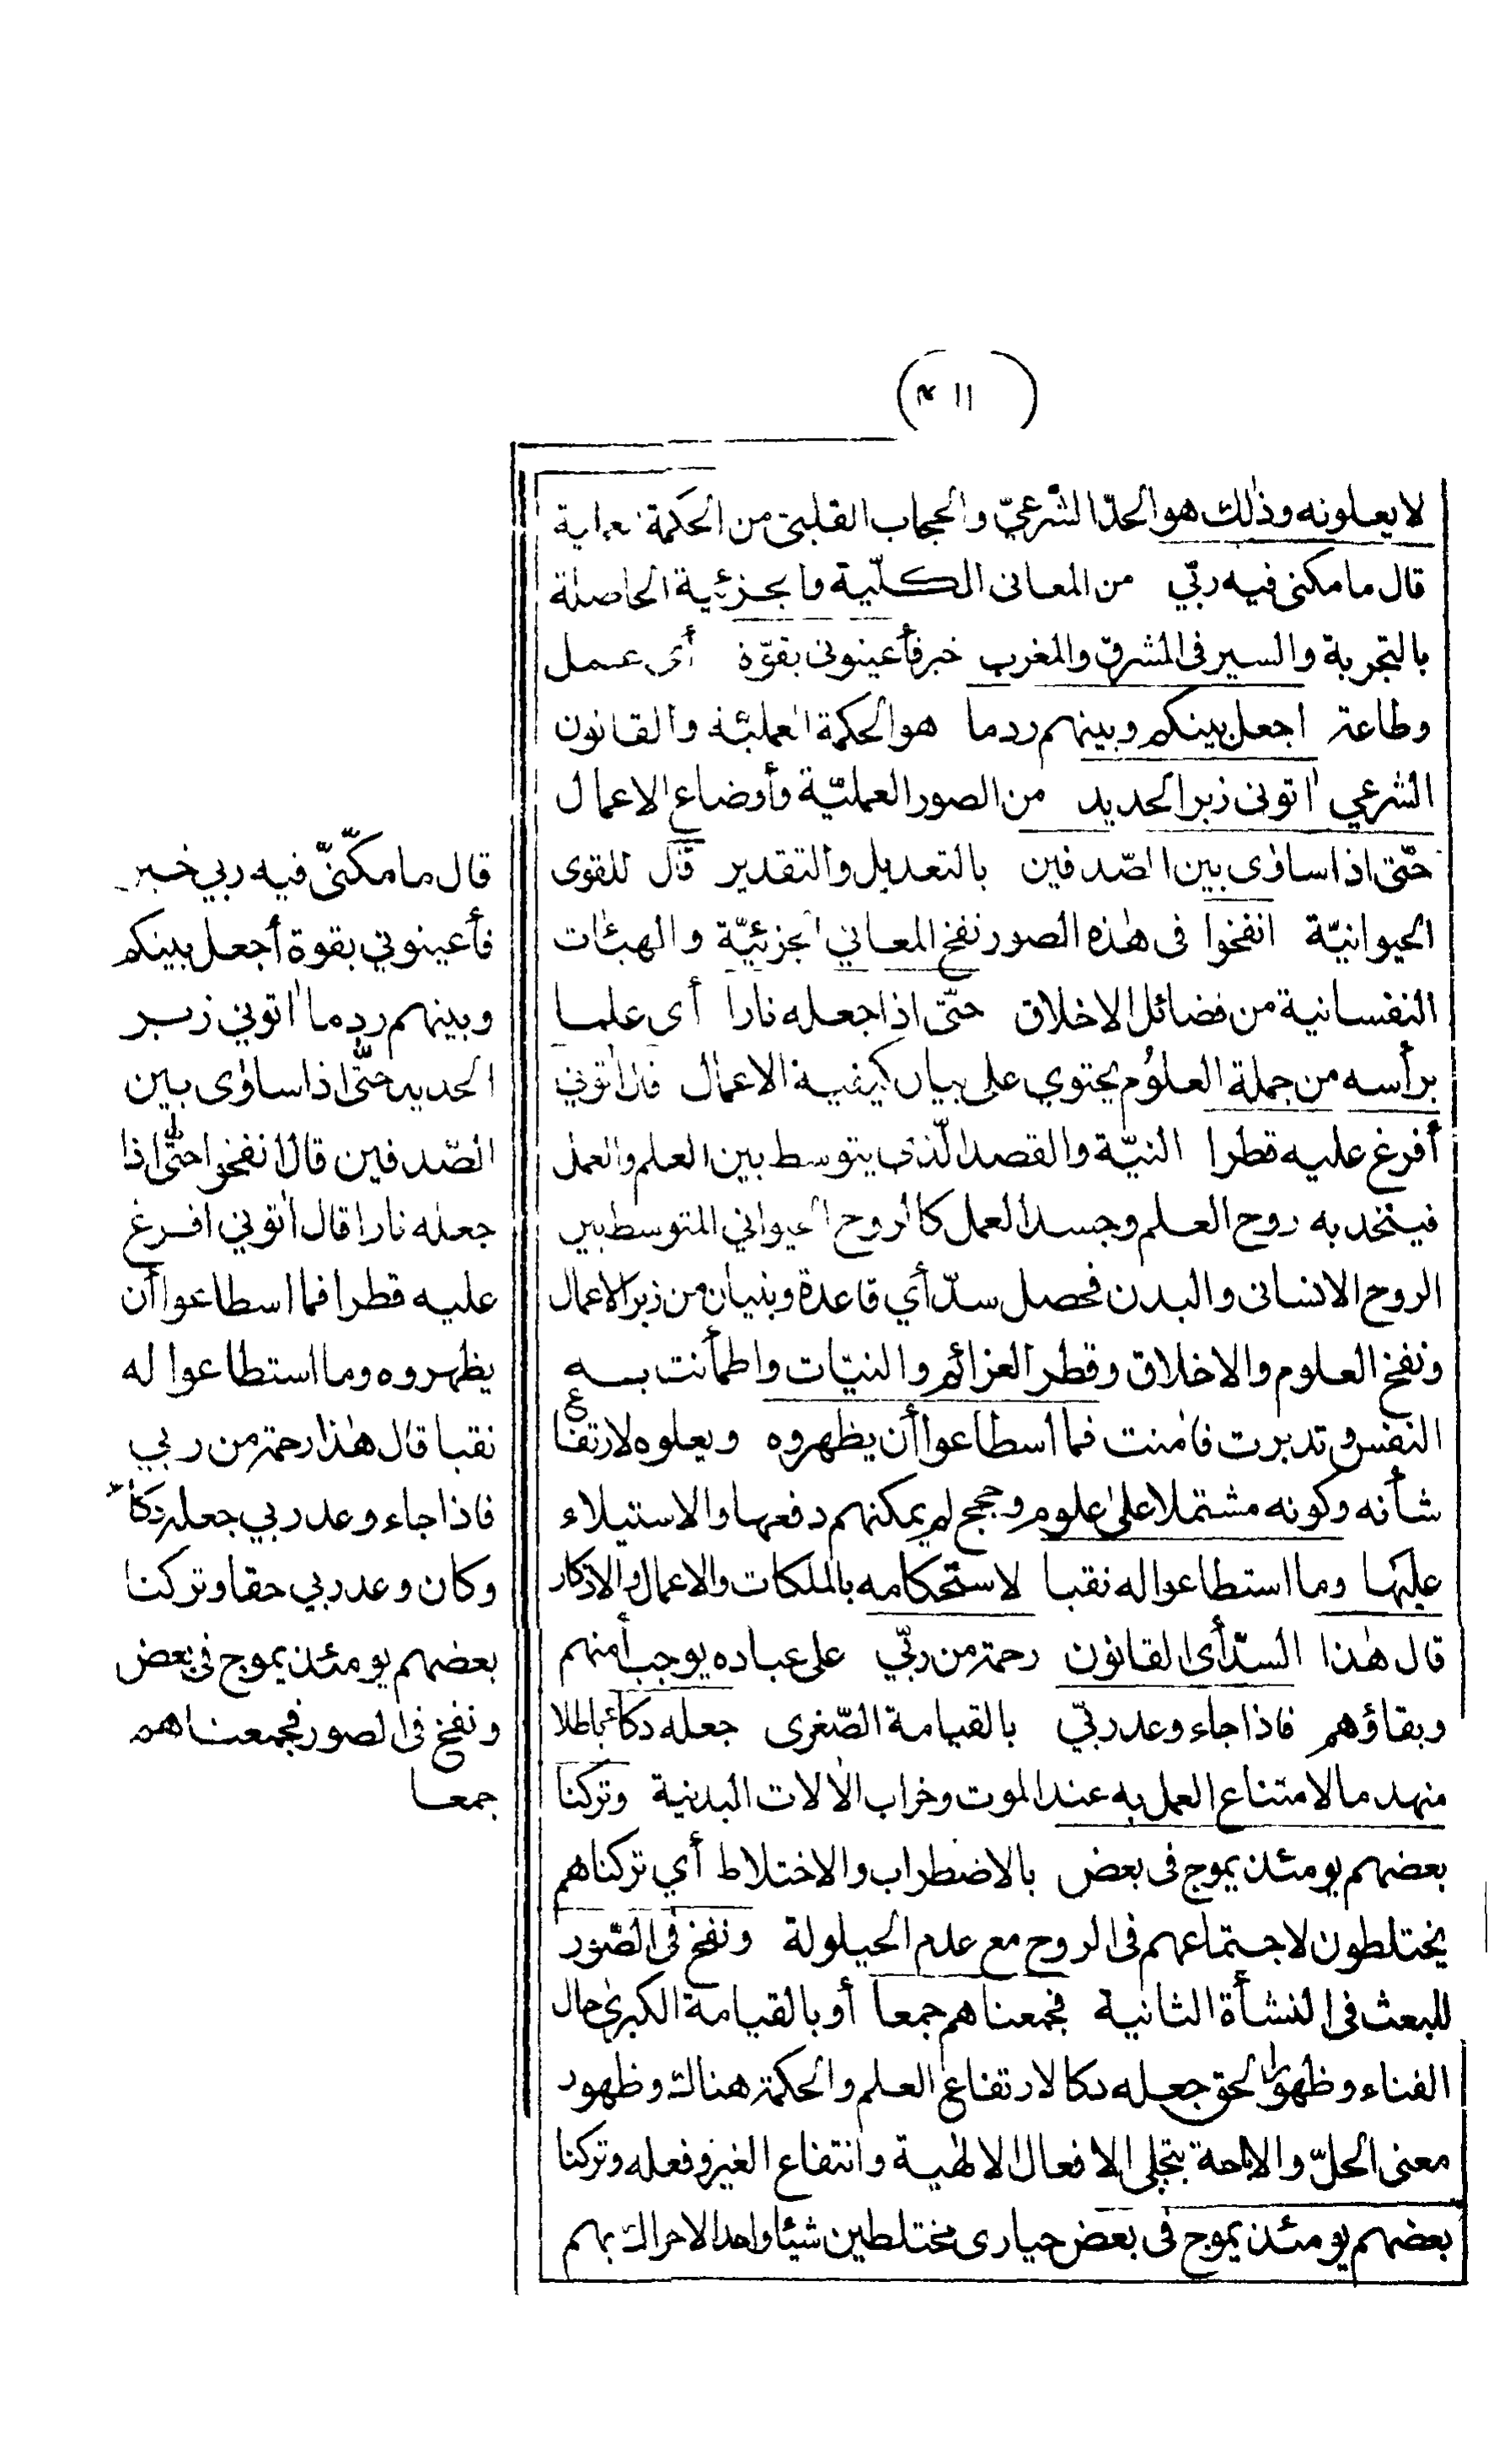 لا يعلونه وذٰلك هو الحدّ الشرعيّ والحجاب القلبيّ من الحكمة
قال ما مكنى فيه ربّي من المعانى الكلّية والجزئية الحاصلة
بالتجربة والسير فى المشرق والمغرب خير فأعينونى بقوّة أى عمل
وطاعة اجعل بينكم وبينهم ردما هو الحكمة العمليّة والقانون
الشرعي اٰتونى زبر الحديد من الصور العمليّة وأوضاع الاعمال
حتّى اذا ساوٰى بين الصّدفين بالتعديل والتقدير قال للقوى
الحيوانيّة انفخوا فى هٰذه الصور نفخ المعاني الجزئيّة والهيئات
النفسانية من فضائل الاخلاق حتّى اذا جعله نارا أى علما
برأسه من جملة العلوم يحتوي على بيان كيفية الاعمال قال اٰتوني
أفرغ عليه قطرا النيّة والقصد الّذى يتوسط بين العلم والعمل
فيتحد به روح العلم وجسد العمل كالروح الحيواني المتوسط بين
الروح الانسانى والبدن فحصل سدّ أي قاعدة وبنيان من زبر الاعمال
ونفخ العلوم والاخلاق وقطر العزائم والنيّات واطمأنت به
النفس وتدبرت فاٰمنت فما اسطاعوا أن يظهروه ويعلوه لارتفاع
شأنه وكونه مشتملا علىٰ علوم وحجج لم يمكنهم دفعها والاستيلاء
عليها وما استطاعوا له نقبا لاستحكامه بالملكات والاعمال والاذكار
قال هٰذا السدّ أى القانون رحمة من ربّي على عباده يوجب أمنهم
وبقاؤهم فاذا جاء وعد ربّي بالقيامة الصّغرى جعله دكاء باطلا
منهدما لامتناع العمل به عند الموت وخراب الاٰلات البدنية وتركنا
بعضهم يومئذ يموج فى بعض بالاضطراب والاختلاط أي تركناهم
يختلطون لاجتماعهم فى الروح مع عدم الحيلولة ونفخ فى الصّور
للبعث فى النشأة الثانية فجمعناهم جمعا أو بالقيامة الكبرىٰ حال
الفناء وظهور الحق جعله دكا لارتفاع العلم والحكمة هنالك وظهور
معنى الحلّ والاباحة بتجلى الافعال الالٰهية وانتفاء الغير وفعله وتركنا
بعضهم يومئذ يموج فى بعض حيارى مختلطين شيئا واحدا لا حراك بهم
قال ما مكّنّي فيه ربي خير
فأعينوني بقوة أجعل بينكم
وبينهم ردما اٰتوني زبر
الحديد حتّى اذا ساوٰى بين
الصّدفين قال انفخوا حتّى اذا
جعله نارا قال اٰتوني افرغ
عليه قطرا فما اسطاعوا أن
يظهروه وما استطاعوا له
نقبا قال هٰذا رحمة من ربي
فاذا جاء وعد ربي جعله دكاء
وكان وعد ربي حقا وتركنا
بعضهم يومئذ يموج فى بعض
ونفخ فى الصور فجمعناهم
جمعا